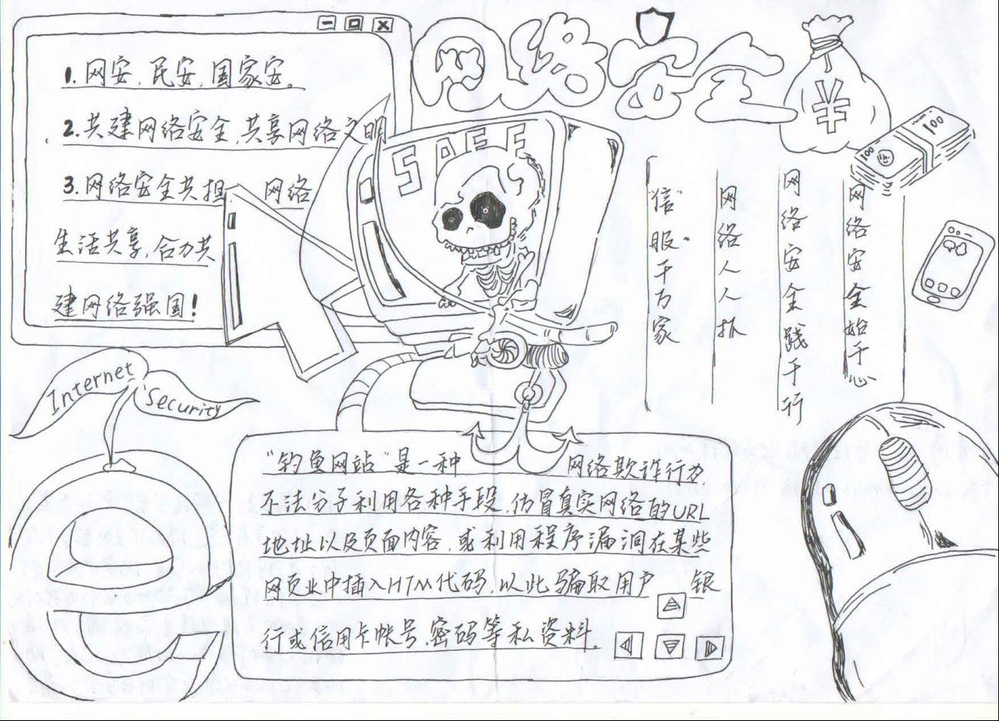 网络安全
1.网安,民安,国家安。
2.共建网络安全,共享网络文明
3.网络安全共担 网络
生活共享,合力共
建网络强国!
SAFE
¥
100
100
网络安全始于心
网络安全践于行
网络人人抓
"信"服千万家
Internet
Security
"钓鱼网站"是一种 网络欺诈行为
不法分子利用各种手段,仿冒真实网络的URL
地址以及页面内容,或利用程序漏洞在某些
网页业中插入HTM代码,以此骗取用户 银
行或信用卡帐号,密码等私资料.